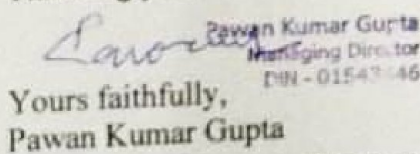 Pawan Kumar Gupta
Managing Director
DIN - 01543
Yours faithfully,
Pawan Kumar Gupta